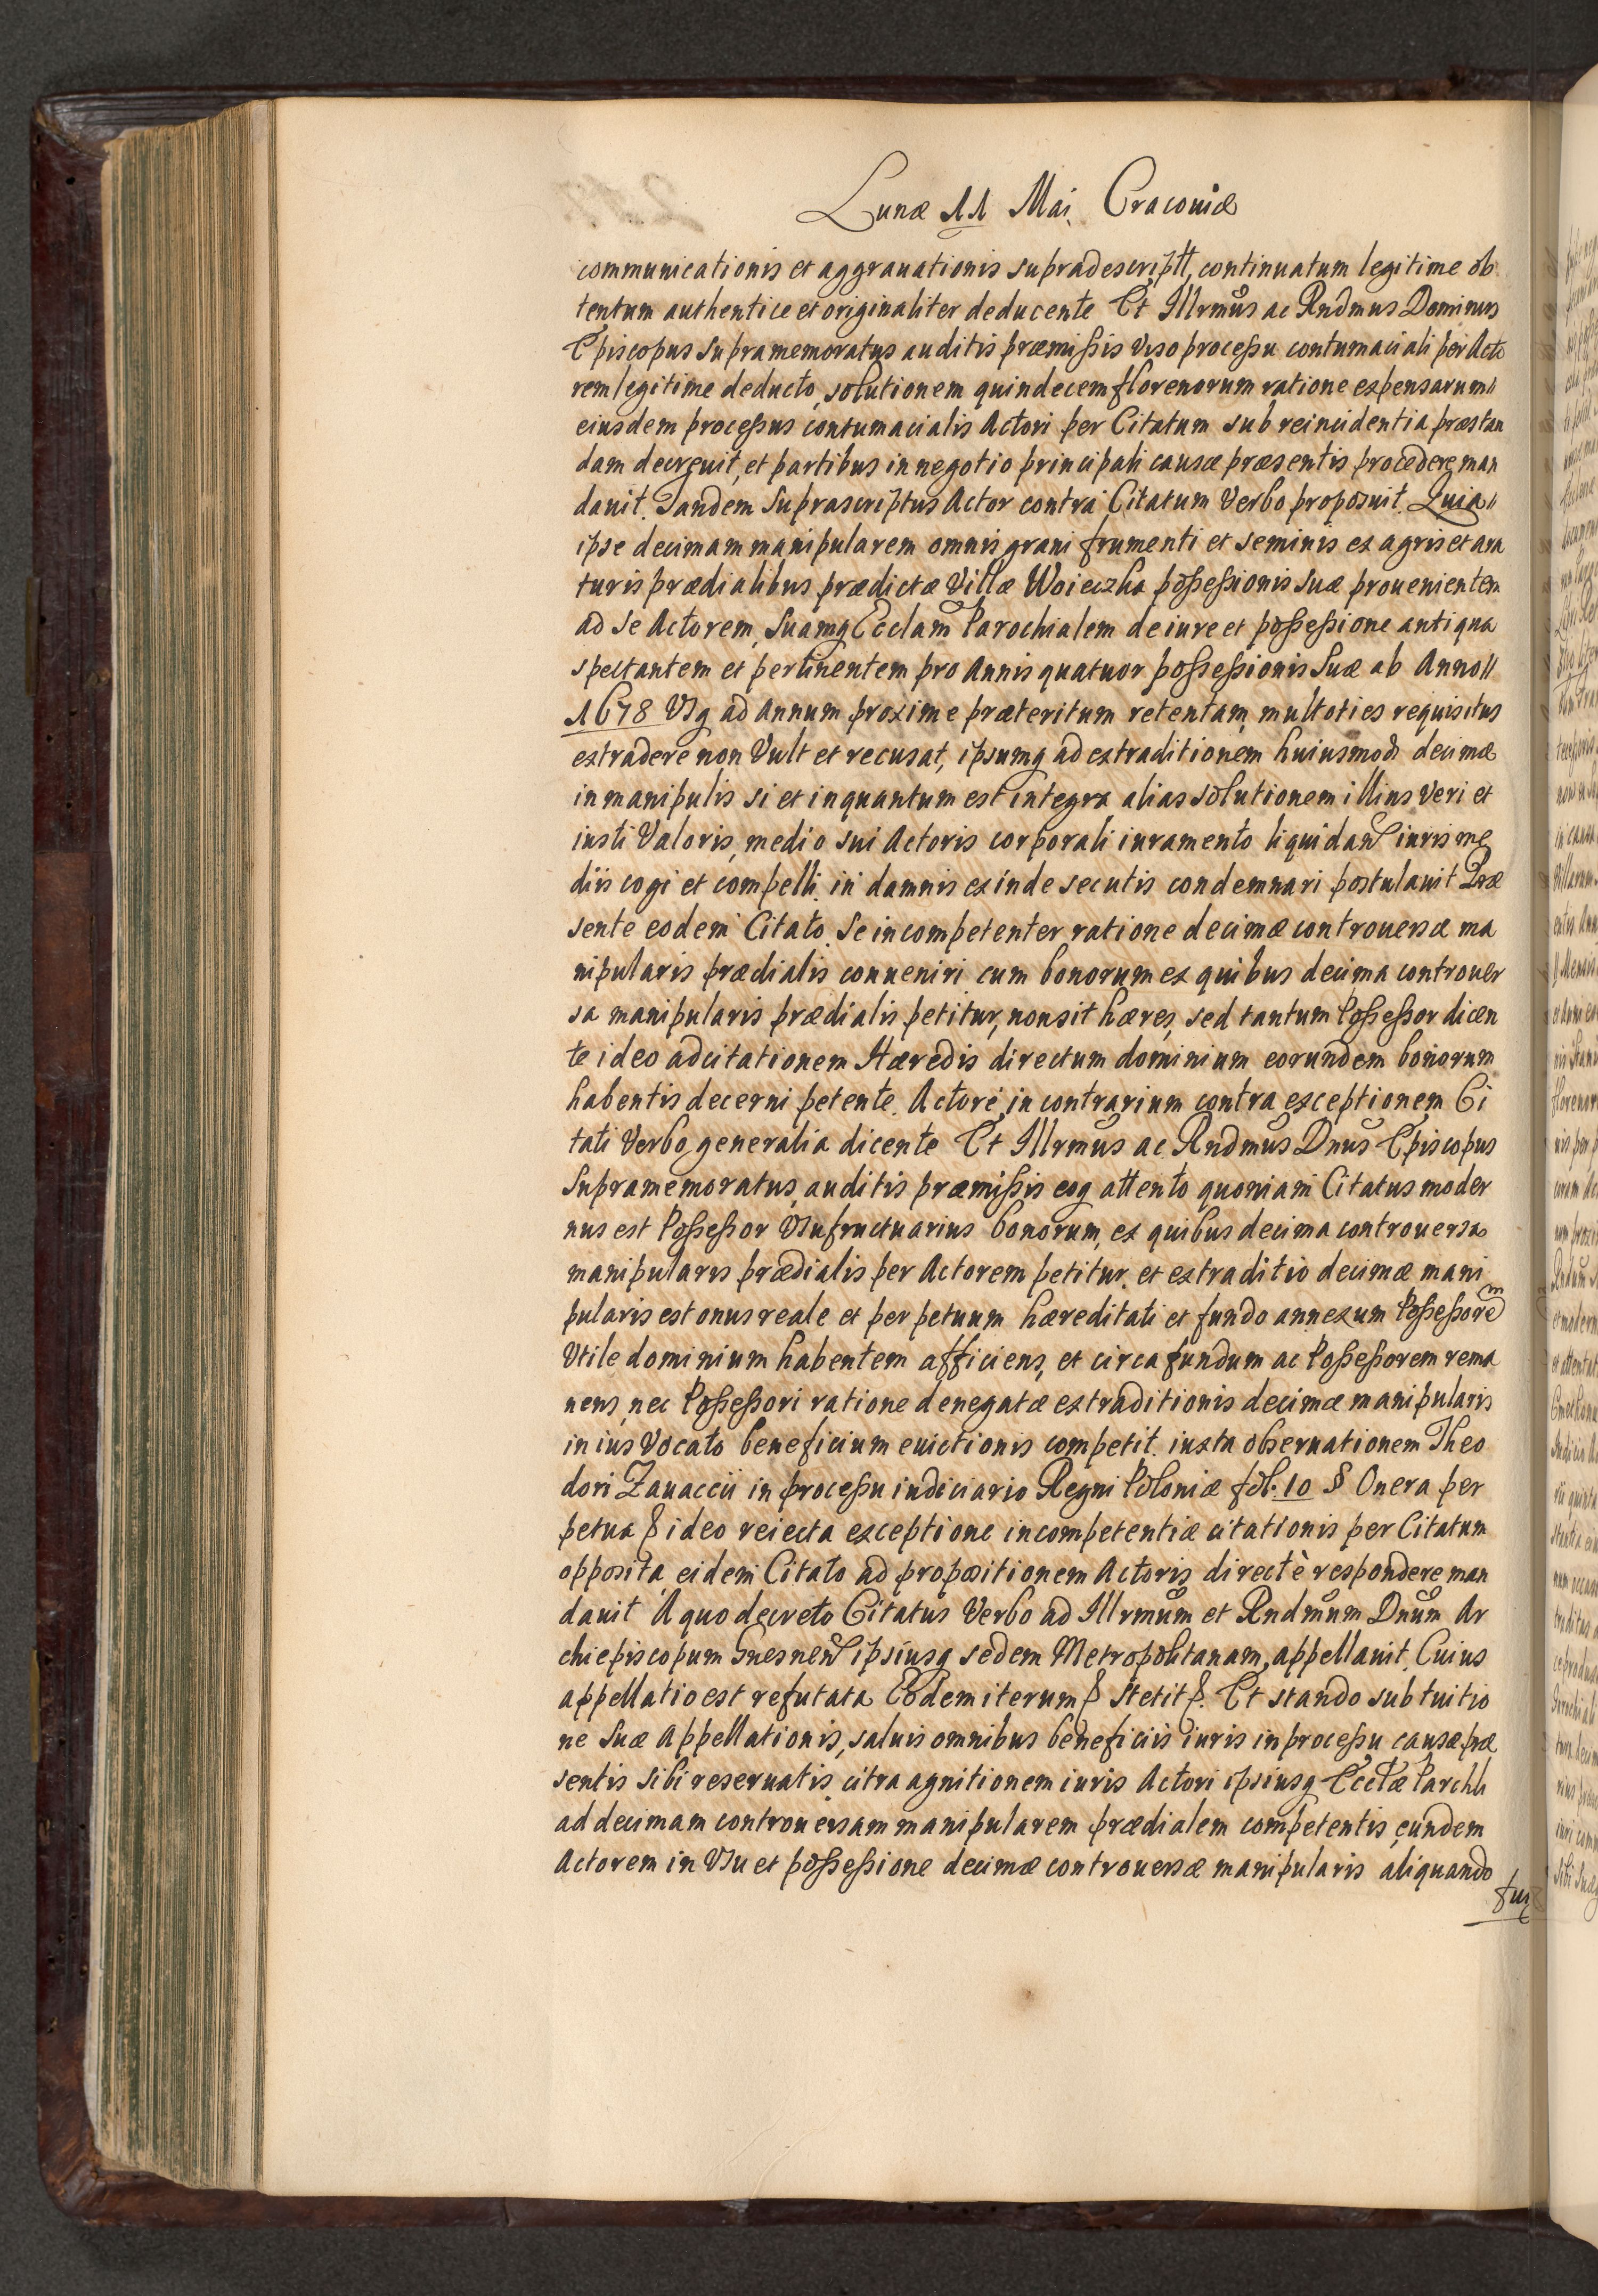 Lunæ 11 Mai, Cracouiæ
communicationis et aggrauationis supradescriptt, continuatum legitime ob
tentum authentice et originaliter deducente Et Illrmus ac Rndmus Dominus
Episcopus Supramemoratus auditis præmissis Viso processu contumaciali per Acto
rem legitime deducto, solutionem quindecem florenorum ratione expensarum
eiusdem processus contumacialis Actori per Citatum sub reincidentia præstan
dam decreuit, et partibus in negotio principali causæ præsentis procedere man
dauit. Tandem Suprascriptus Actor contra Citatum Verbo proposuit. Quia
ipse decimam manipularem omnis grani frumenti et seminis ex agris et ara
turis prædialibus prædictæ Villæ Woieczka possessionis suæ prouenientem
ad se Actorem, Suamq Ecclam Parochialem de iure et possessione antiqua
spectantem et pertinentem pro Annis quatuor possessionis Suæ ab Anno
1678 Vsq ad Annum proxime præteritum retentam, multoties requisitus
extradere non Vult et recusat, ipsumq ad extraditionem huiusmodi decimæ
in manipulis si et inquantum est integra alias solutionem illius Veri et
iusti Valoris, medio sui Actoris corporali iuramento liquidan iuris me
diis cogi et compelli. in damnis exinde secutis condemnari postulauit Præ
sente eodem Citato. Se incompetenter ratione decimæ controuersæ ma
nipularis prædialis conueniri cum bonorum ex quibus decima controuer
sa manipularis prædialis petitur, non sit hæres, sed tantum Possessor dicen
te ideo adcitationem Hæredis directum dominium eorundem bonorum
habentis decerni petente. Actore in contrarium contra exceptionem Ci
tati Verbo generalia dicente Et Illrmus ac Rndmus Dnus Episcopus
Supramemoratus, auditis præmissis eoq attento quoniam Citatus moder
nus est Possessor Vsufructuarius bonorum, ex quibus decima controuersa
manipularis prædialis per Actorem petitur. et extraditio decimæ mani
pularis est onus reale et perpetuum hæreditati et fundo annexum Possessorem
Vtile dominium habentem afficiens, et circa fundum ac Possessorem rema
nens, nec Possessori ratione denegatæ extraditionis decimæ manipularis
in ius Vocato beneficium euictionis competit. iuxta obseruationem Theo
dori Zauaccii in processu iudiciario Regni Poloniæ fol. 10 § Onera per
petua & ideo reiecta exceptione incompetentiæ citationis per Citatum
opposita, eidem Citato ad propositionem Actoris directè respondere man
dauit A quo decreto Citatus Verbo ad Illrmum et Rndmum Dnum Ar
chiepiscopum Gnesnen ipsiusq sedem Metropolitanam, appellauit. Cuius
appellatio est refutata Eodem iterum & stetit &. Et stando sub tuitio
ne Suæ Appellationis, saluis omnibus beneficiis iuris in processu causæ præ
sentis sibi reseruatis, citra agnitionem iuris Actori ipsiusq Ecclæ Parchli
ad decimam controuersam manipularem prædialem competentis, eundem
Actorem in Vsu et possessione decimæ controuersæ manipularis aliquando
fui